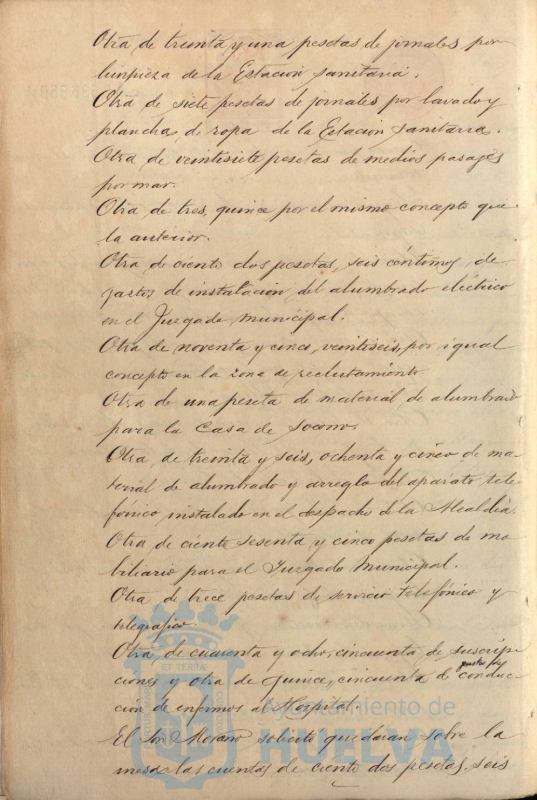 Otra de treinta y una pesetas de jornales por
limpieza de la Estación sanitaria.
Otra de siete pesetas de jornales por lavado y
plancha de ropa de la Estación sanitaria.
Otra de veintisiete pesetas de medios pasages
por mar.
Otra de tres, quince por el mismo concepto que
la anterior.
Otra de ciento dos pesetas, seis céntimos de
gastos de instalación del alumbrado eléctrico
en el Juzgado municipal.
Otra de noventa y cinco, veintiseis, por igual
concepto en la zona de reclutamiento.
Otra de una peseta de material de alumbrado
para la Casa de Socorro.
Otra de treinta y seis, ochenta y cinco de ma-
terial de alumbrado y arreglo del aparato tele-
fónico instalado en el despacho de la Alcaldía.
Otra de ciento sesenta y cinco pesetas de mo-
biliario para el Juzgado Municipal.
Otra de trece pesetas de servicio telefónico y
telegráfico.
Otra de cuarenta y ocho, cincuenta de suscrip-
ciones y otra de quince, cincuenta de conduc-
ción de enfermos al Hospital.
Ayuntamiento de
HUELVA
El Sor. Moreno solicitó quedaran sobre la
mesa las cuentas de ciento dos pesetas, seis